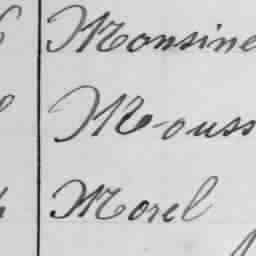 Monsine
Mouss
Morel